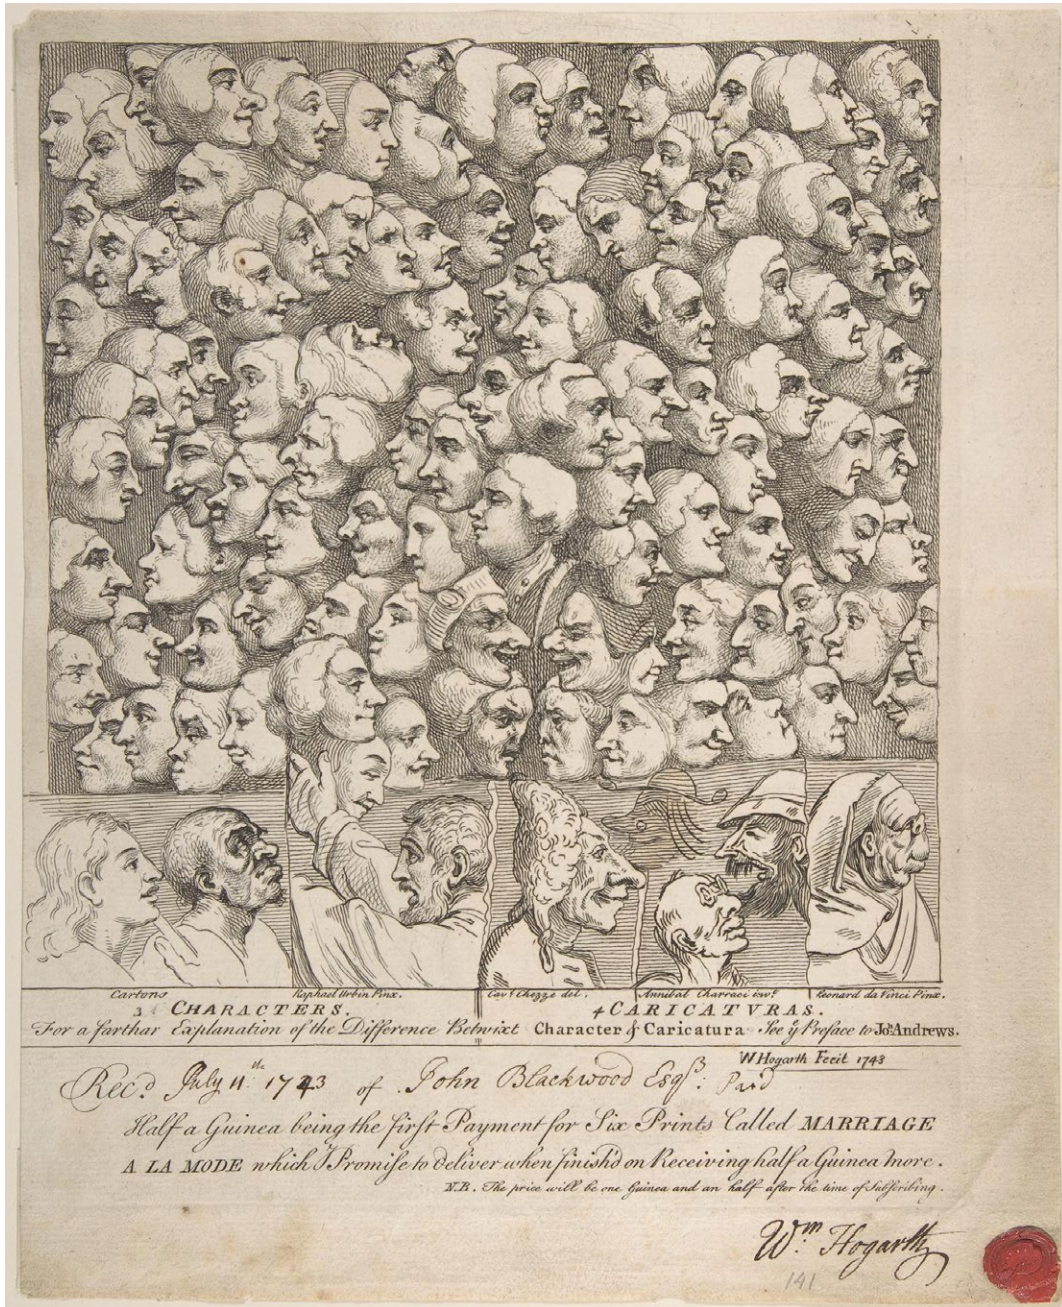 Cartons Raphael Urbin Pinx. Cav.ͬ Chezze del. Annibal Charraci inv.ͭ Leonard da Vinci Pinx.
3 CHARACTERS. 4 CARICATVRAS.
For a farthar Explanation of the Difference Betwixt Character & Caricatura See yͤ Preface to Joͬ. Andrews.
W Hogarth Fecit 1743
Rec.ᵈ July 11.ᵗʰ 1743 of John Blackwood Esqʳ: Paid
Half a Guinea being the first Payment for Six Prints Called MARRIAGE
A LA MODE which I Promise to deliver when finish'd on Receiving half a Guinea more.
N.B. The price will be one Guinea and an half after the time of Subscribing.
W.ᵐ Hogarth
141